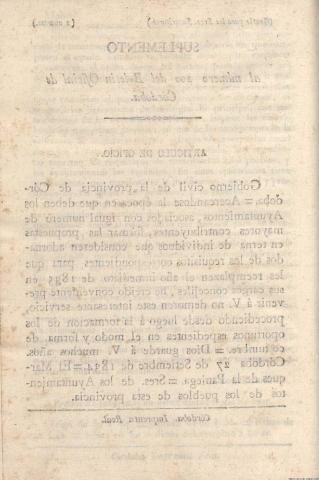 (Gratis para los Sres. Suscritores)
SUPLEMENTO
al número 200 del Boletin Oficial de
Córdoba.
ARTICULO DE OFICIO.
Gobierno civil de la provincia de Cór-
doba. = Acercandose la época en que deben los
Ayuntamientos, asociados con igual número de
mayores contribuyentes, formar las propuestas
en terna de individuos que consideren adorna-
dos de las requisitos correspondientes, para que
les reemplazen el año inmediato de 1835 en
sus cargos concejiles, he creido conveniente pre-
venir á V. no demoren este interesante servicio,
procediendo desde luego á la formacion de los
oportunos espedientes en el modo y forma de
costumbre. = Dios guarde á V. muchos años.
Córdoba 27 de Setiembre de 1834. = El Mar-
ques de la Paniega. = Sres. de los Ayuntamien-
tos de los pueblos de esta provincia.
Córdoba. Imprenta Real.